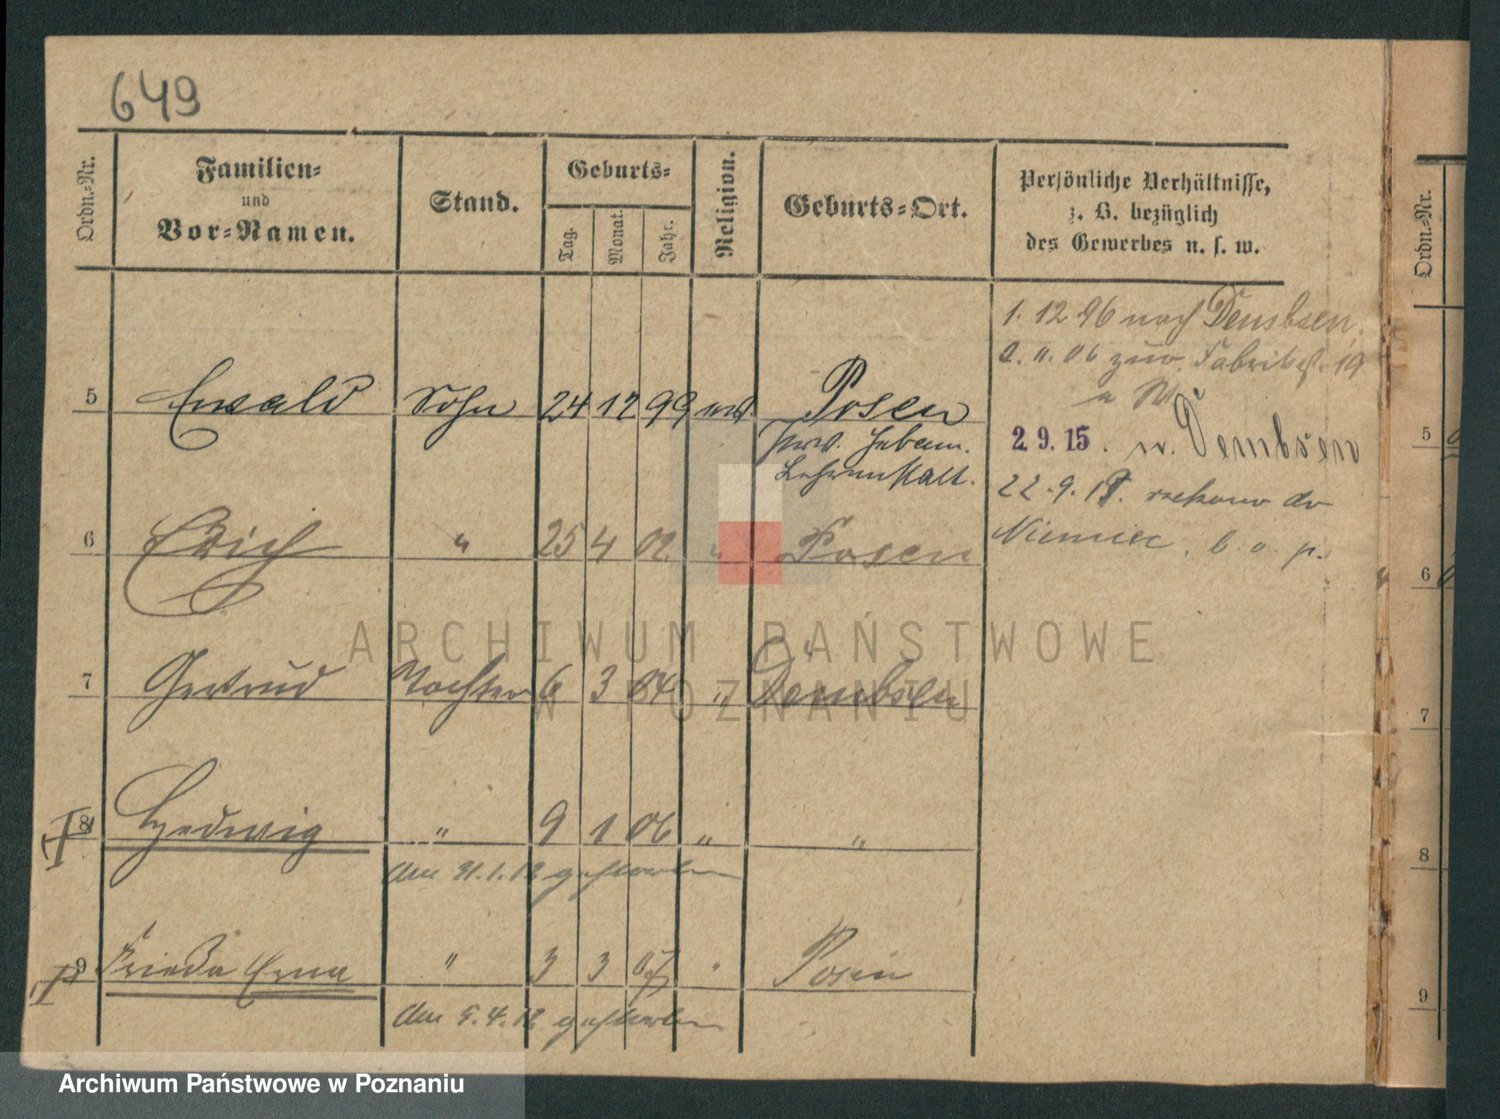 649
Ordn.-Nr.
Familien-
und
Vor-Namen.
Stand.
Geburts-
Tag.
Monat.
Jahr.
Religion.
Geburts-Ort.
Persönliche Verhältnisse,
z. B. bezüglich
des Gewerbes u. s. w.
1. 12 96 nach Dembsen
2. 11. 06 zuw. Fabrikst. 19
5 Ewald Sohn 24 12 99 Posen
Prov. Hebam.
Lehranstalt.
2.9.15. n. Dembsen
22.9.19. rzekomo do
Niemiec, b. o. p.
6 Erich " 25 4 02 " Posen
7 Gertrud Tochter 6 3 04 " Dembsen
8 Hedwig " 9 1 06 " "
den 31.1.12 gestorben
9 Frieda Erna " 3 3 07 " Posen
den 5.4.12 gestorben
Ordn.-Nr.
5
6
7
8
9
ARCHIWUM PAŃSTWOWE
W POZNANIU
Archiwum Państwowe w Poznaniu